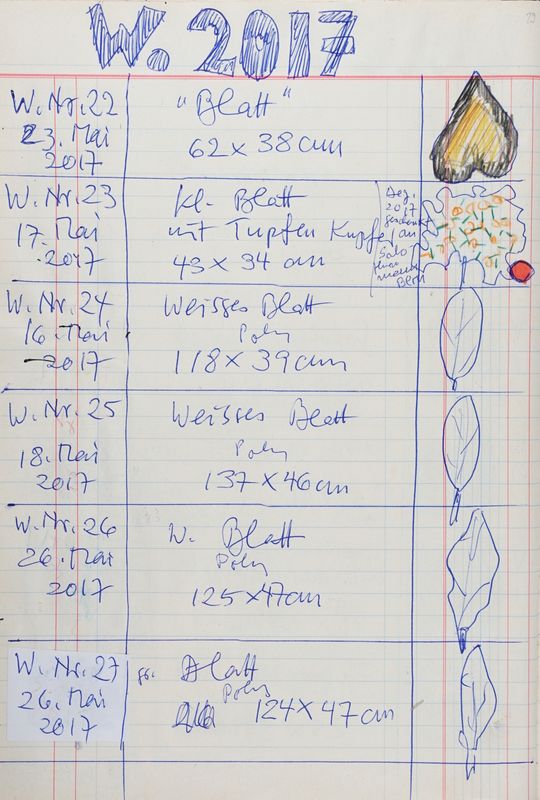 W. 2017
29
W. Nr. 22
23. Mai
2017
"Blatt"
62 x 38 cm
W. Nr. 23
17. Mai
2017
kl. Blatt
mit Tupfen Kupfer
43 x 34 cm
Dez.
2017
geschenkt
an
Bern
W. Nr. 24
16. Mai
2017
Weisses Blatt
Poly
118 x 39 cm
W. Nr. 25
18. Mai
2017
Weisses Blatt
Poly
137 x 46 cm
W. Nr. 26
26. Mai
2017
W. Blatt
Poly
125 x 47 cm
W. Nr. 27
26. Mai
2017
gr. Blatt
Poly
124 x 47 cm